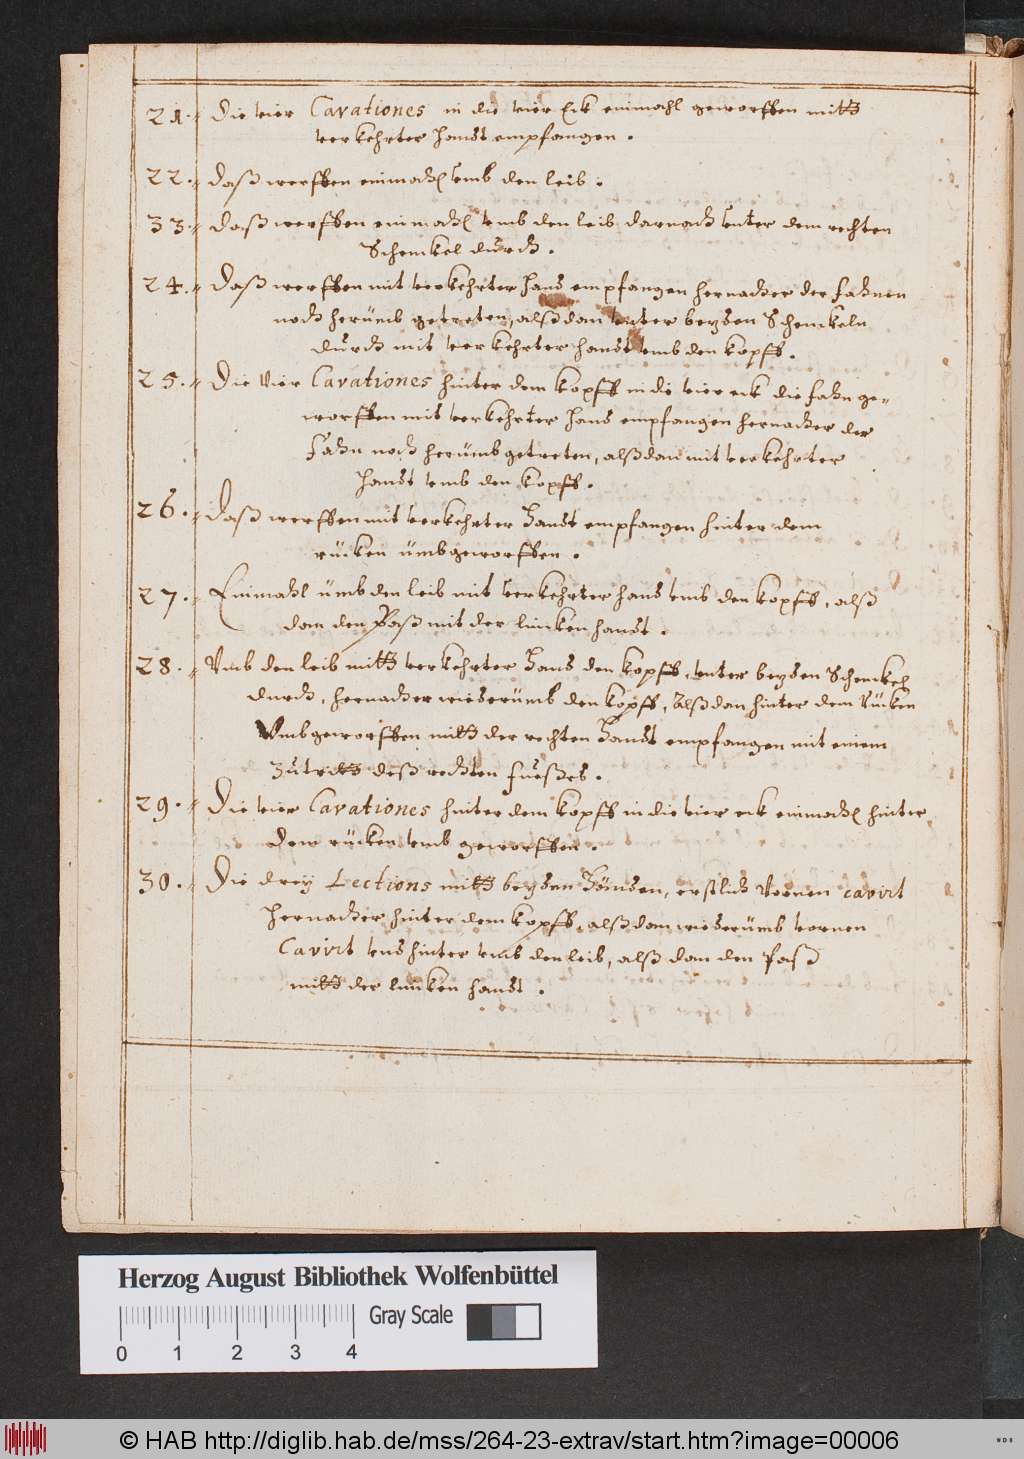 21. Die vier Cavationes in die vier Eck einmahl geworffen mitt
verkehrter handt empfangen.
22. Daß werffen einmahl umb den leib.
33. Daß werffen einmahl umb den leib darnach unter dem rechten
Schenckel durch.
24. Daß werffen mit verkehrter handt empfangen hernacher der fahnen
noch herümb getreten, alß dan unter beyden Schenckeln
durch mit verkehrter handt umb den kopff.
25. Die Vier Cavationes hinter dem kopff in die vier eck die fahn ge-
worffen mit verkehrter handt empfangen hernacher der
fahn noch herümb getreten, alß dan mit verkehrter
handt umb den kopff.
26. Daß werffen mit verkehrter Handt empfangen hinter dem
rücken ümbgeworffen.
27. Einmahl ümb den leib mit verkehrter handt umb den kopff, alß
dan den Paß mit der lincken handt.
28. Umb den leib mitt verkehrter Handt den kopff, unter beyden Schenckel
durch, hernacher wiederümb den kopff, Alß dan hinter dem Rücken
Umbgeworffen mitt der rechten Handt empfangen mit einem
Zutritt deß rechten fueßes.
29. Die vier Cavationes hinter dem kopff in die vier eck einmahl hinter
dem rücken umb geworffen.
30. Die drey Lections mitt beyden Händen, erstlich Vornen cavirt
hernacher hinter dem kopff, alß dan wiederümb vornen
Cavirt und hinter umb den leib, alß dan den Paß
mitt der lincken handt.
Herzog August Bibliothek Wolfenbüttel
Gray Scale
0 1 2 3 4
© HAB http://diglib.hab.de/mss/264-23-extrav/start.htm?image=00006